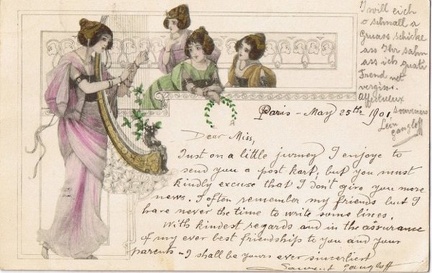 Paris - May 25th 1901
Dear Miss,
Just on a little journey I enjoye to
send you a post kart, but you must
kindly excuse that I don't give you more
news. I often remember my friends but I
have never the time to write some lines.
With kindest regards and in the assurance
of my ever best friendship to you and your
parents - I shall be yours ever sincerlist
I will eich
schnall a
Gruass schicke
ass Ihr sahn
ass ich
Freind net
vergiss.